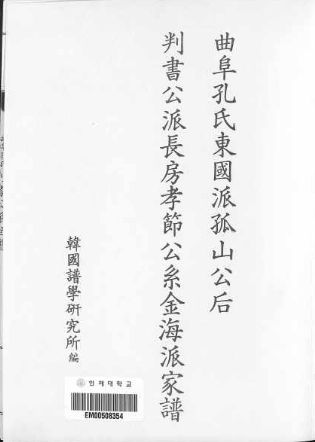 曲阜孔氏東國派孤山公后
判書公派長房孝節公系金海派家譜
韓國譜學硏究所 編
인제대학교
EM00508354